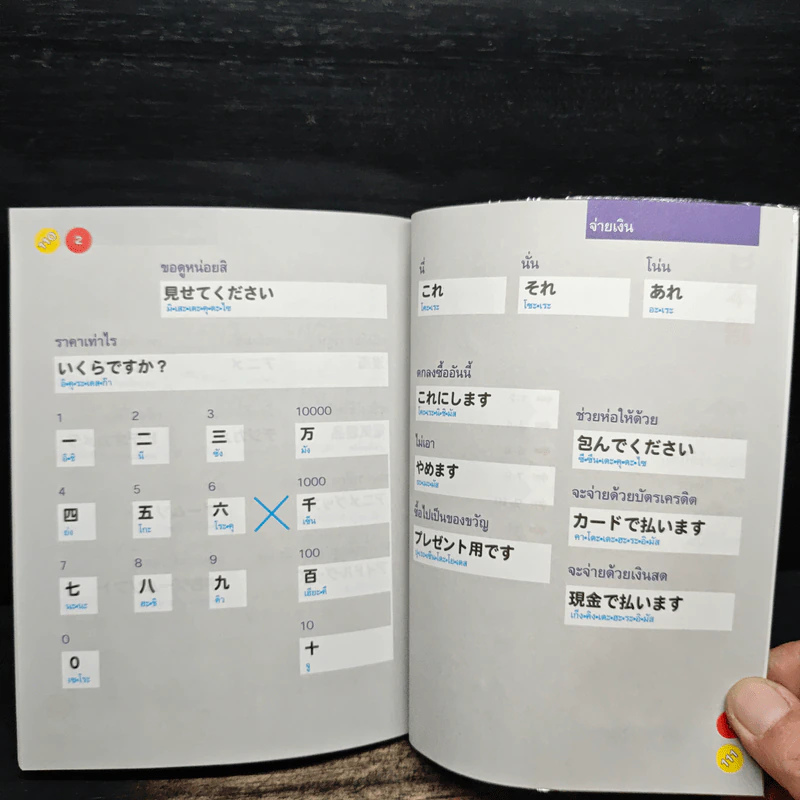 110 2
ขอดูหน่อยสิ
見せてください
มิ•เสะ•เตะ•คุ•ดะ•ไซ
ราคาเท่าไร
いくらですか？
อิ•คุ•ระ•เดส•ก้า
1 2 3 10000
一 二 三 万
อิ•ชิ นี ซัง มัง
4 5 6 1000
四 五 六 × 千
ย่ง โกะ โระ•คุ เซ็น
7 8 9 100
七 八 九 百
นะ•นะ ฮะ•ชิ คิว เฮียะ•คึ
0 10
0 十
เซ•โระ จู
จ่ายเงิน
นี่ นั่น โน่น
これ それ あれ
โคะ•เระ โซะ•เระ อะ•เระ
ตกลงซื้ออันนี้
これにします
โคะ•เระ•นิ•ชิ•มัส
ไม่เอา
やめます
ยะ•เมะ•มัส
ซื้อไปเป็นของขวัญ
プレゼント用です
ช่วยห่อให้ด้วย
包んでください
จะจ่ายด้วยบัตรเครดิต
カードで払います
คา•โดะ•เดะ•ฮะ•ระ•อิ•มัส
จะจ่ายด้วยเงินสด
現金で払います
เก็ง•คิง•เดะ•ฮะ•ระ•อิ•มัส
111